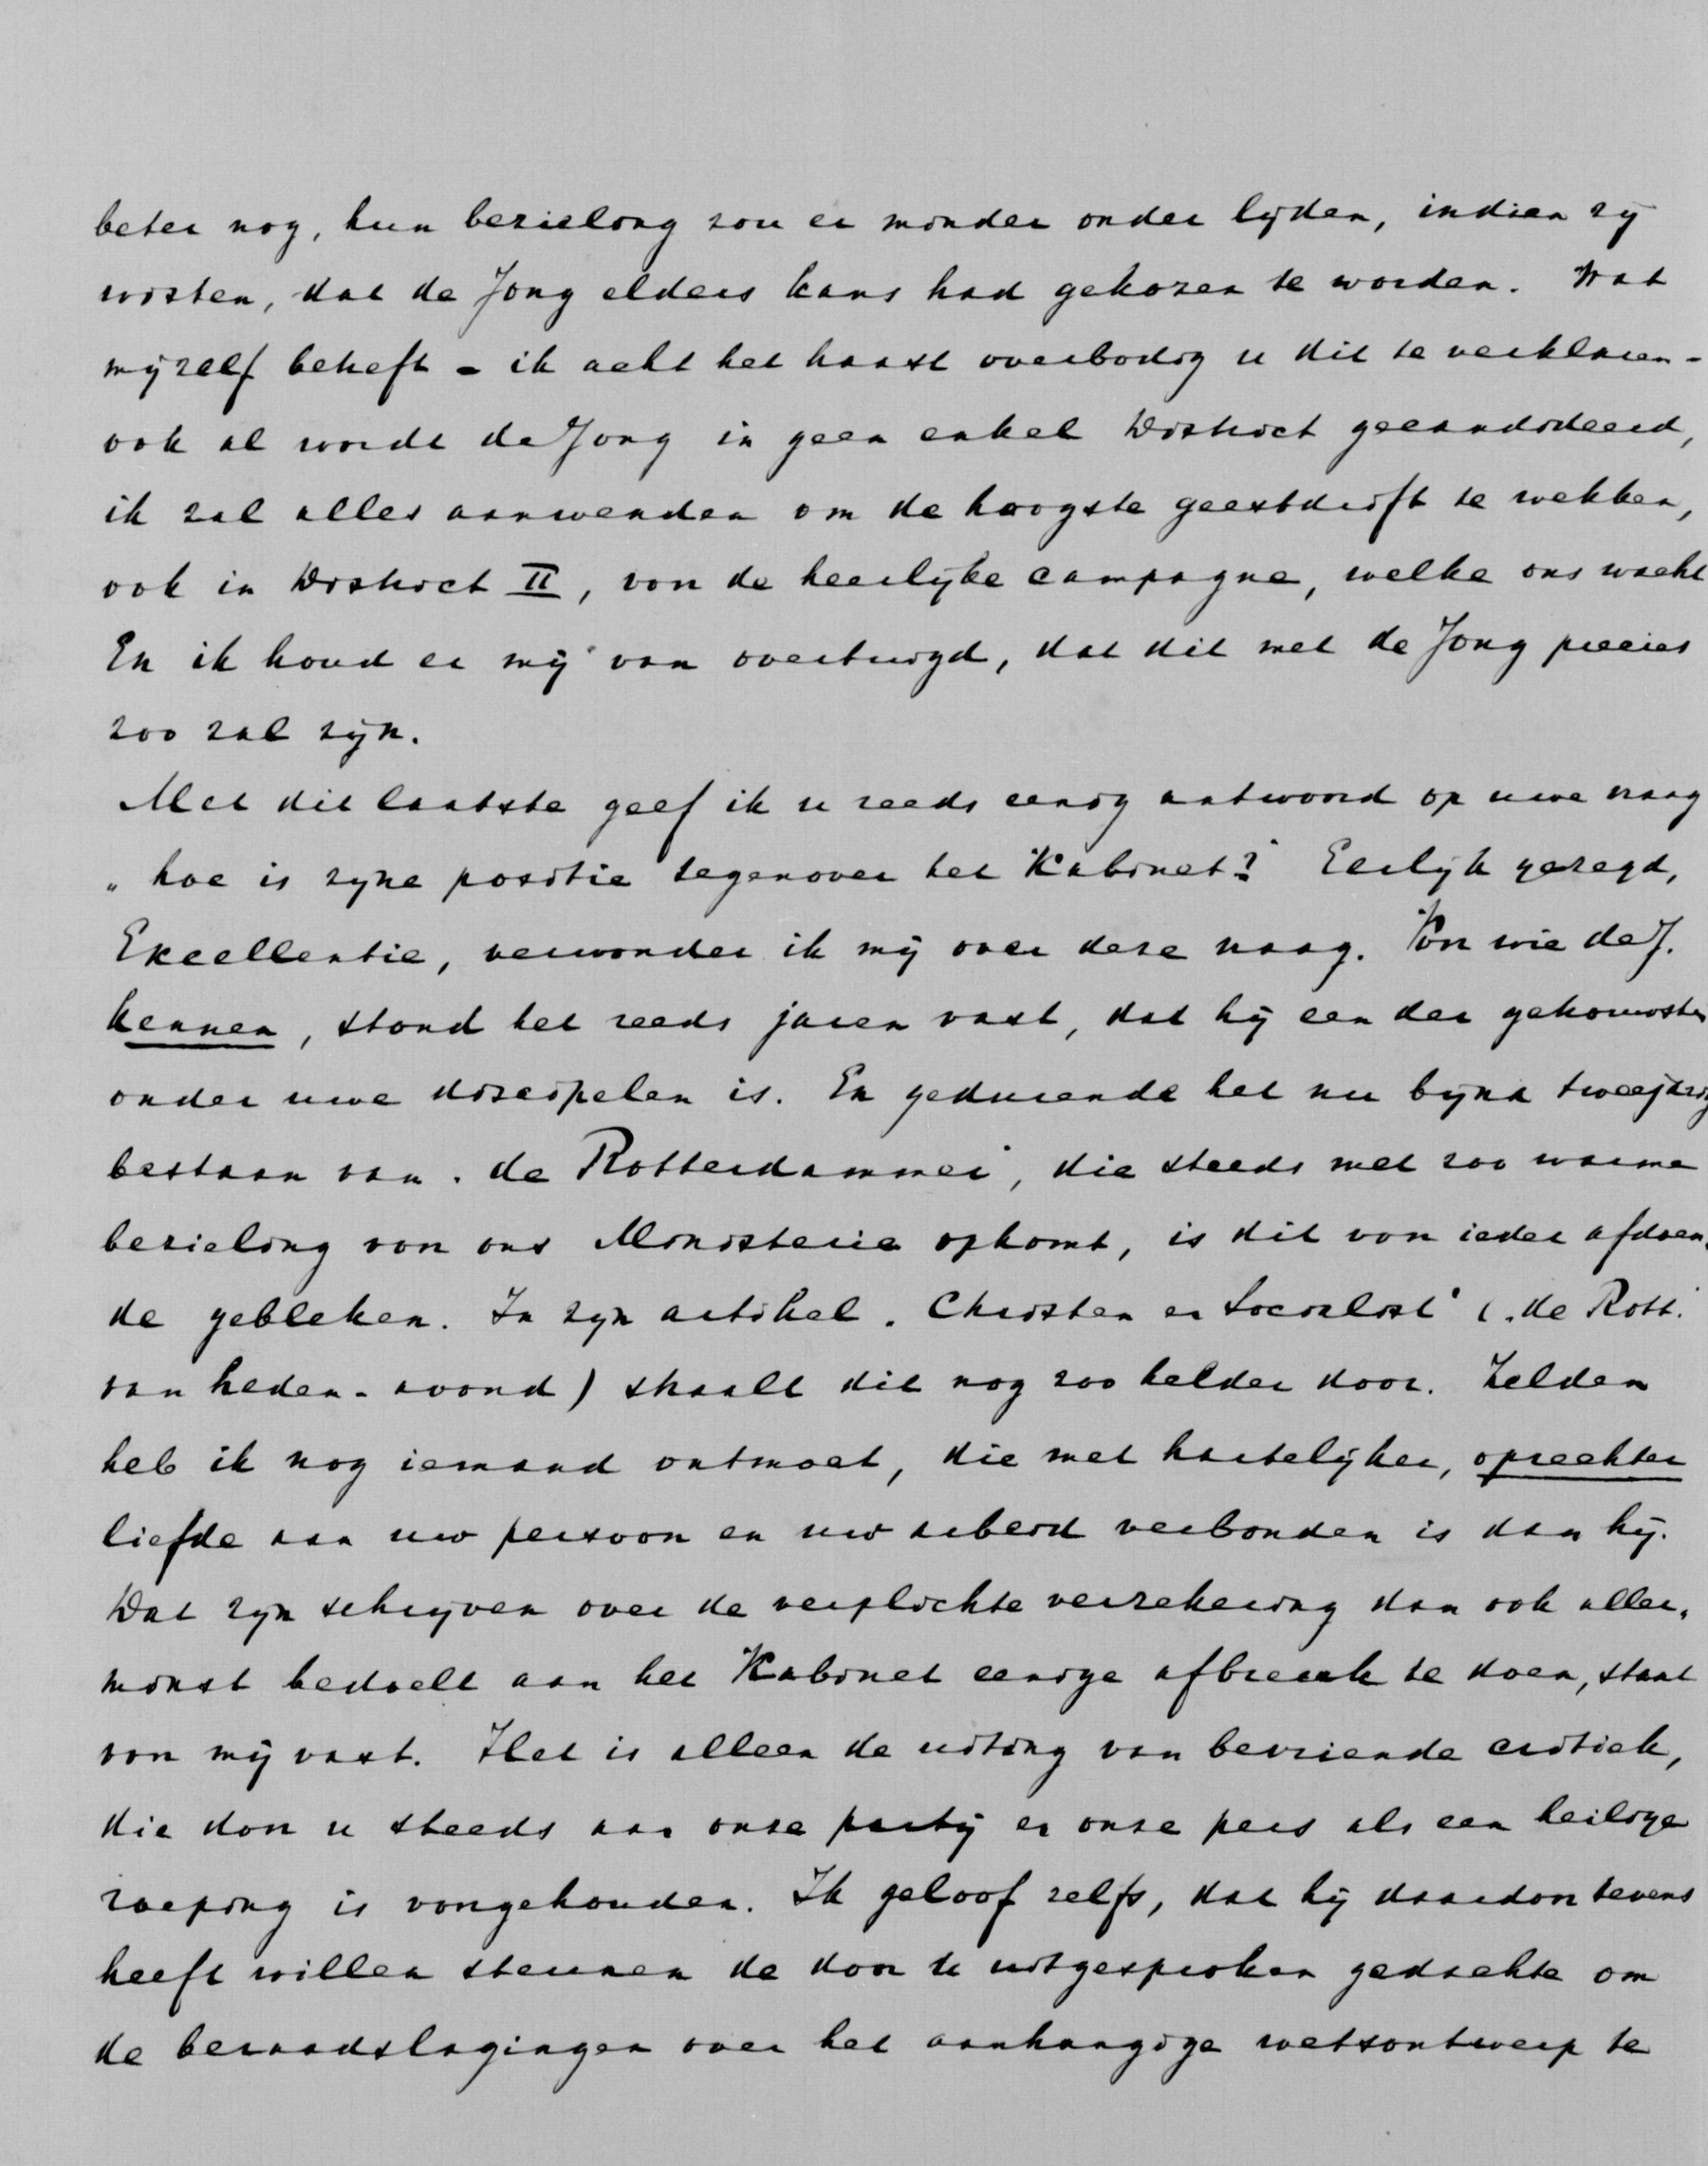 beter nog, hun bezieling zou er minder onder lijden, indien zij
wisten, dat de Jong elders kans had gekozen te worden. Wat
mijzelf betreft - ik acht het haast overbodig u dit te verklaren -
ook al wordt de Jong in geen enkel District gecandideerd,
ik zal alles aanwenden om de hoogste geestdrift te wekken,
ook in District II, voor de heerlijke campagne, welke ons wacht
En ik houd er mij van overtuigd, dat dit met de Jong precies
zoo zal zijn.
Met dit laatste geef ik u reeds eenig antwoord op uwe vraag
„hoe is zijne positie tegenover het Kabinet?" Eerlijk gezegd,
Excellentie, verwonder ik mij over deze vraag. Voor wie de J.
kennen, stond het reeds jaren vast, dat hij een der getrouwsten
onder uwe discipelen is. En gedurende het nu bijna tweejarig
bestaan van „de Rotterdammer", die steeds met zoo warme
bezieling voor ons Ministerie opkomt, is dit voor ieder afdoen-
de gebleken. In zijn artikel „Christen en Socialist" („de Rott."
van heden-avond) straalt dit nog zoo helder door. Zelden
heb ik nog iemand ontmoet, die met hartelijker, oprechter
liefde aan uw persoon en uw arbeid verbonden is dan hij.
Dat zijn schrijven over de verplichte verzekering dan ook aller-
minst bedoelt aan het Kabinet eenige afbreuk te doen, staat
voor mij vast. Het is alleen de uiting van bevriende critiek,
die door u steeds aan onze partij en onze pers als een heilige
roeping is voorgehouden. Ik geloof zelfs, dat hij daardoor tevens
heeft willen steunen de door u uitgesproken gedachte om
de beraadslagingen over het aanhangige wetsontwerp te